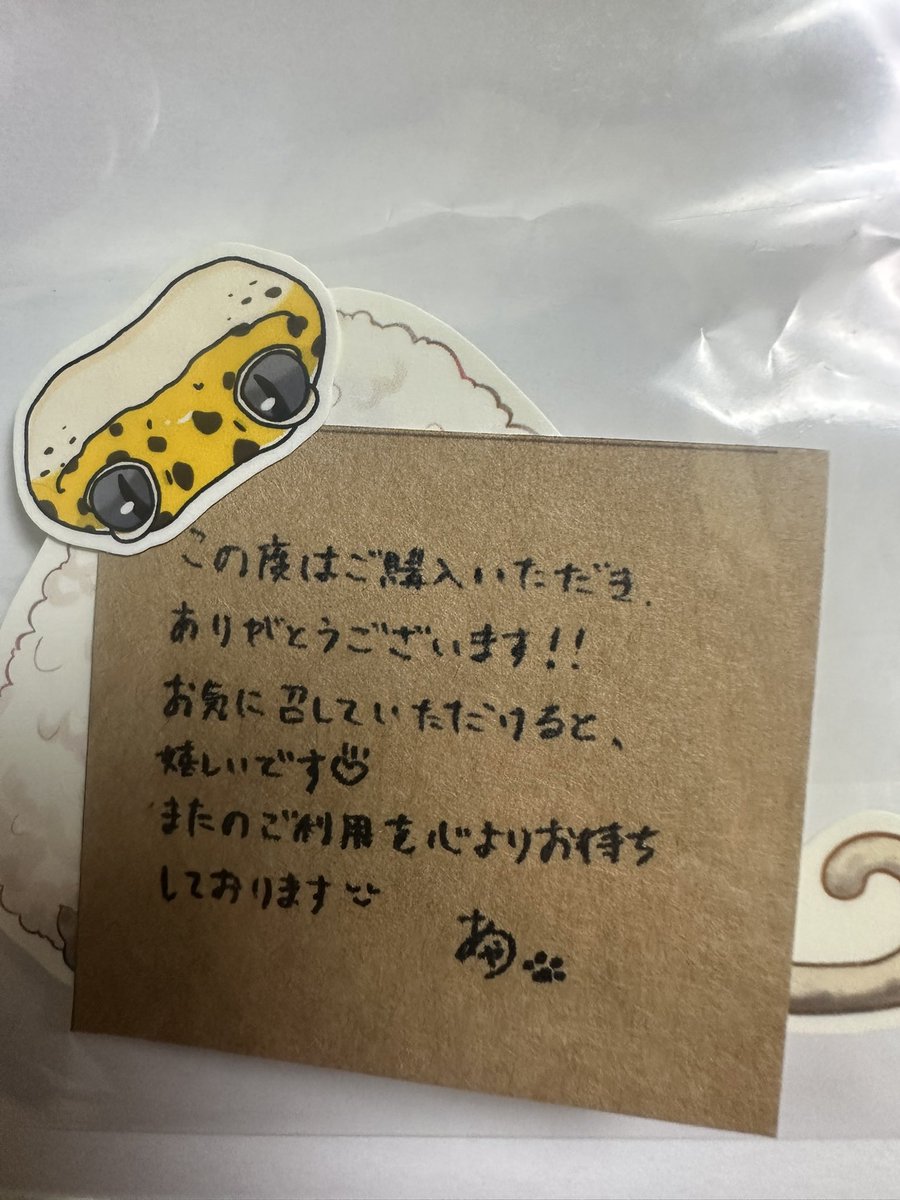 この度はご購入いただき、
ありがとうございます!!
お気に召していただけると、
嬉しいです
またのご利用を心よりお待ち
しております
あや